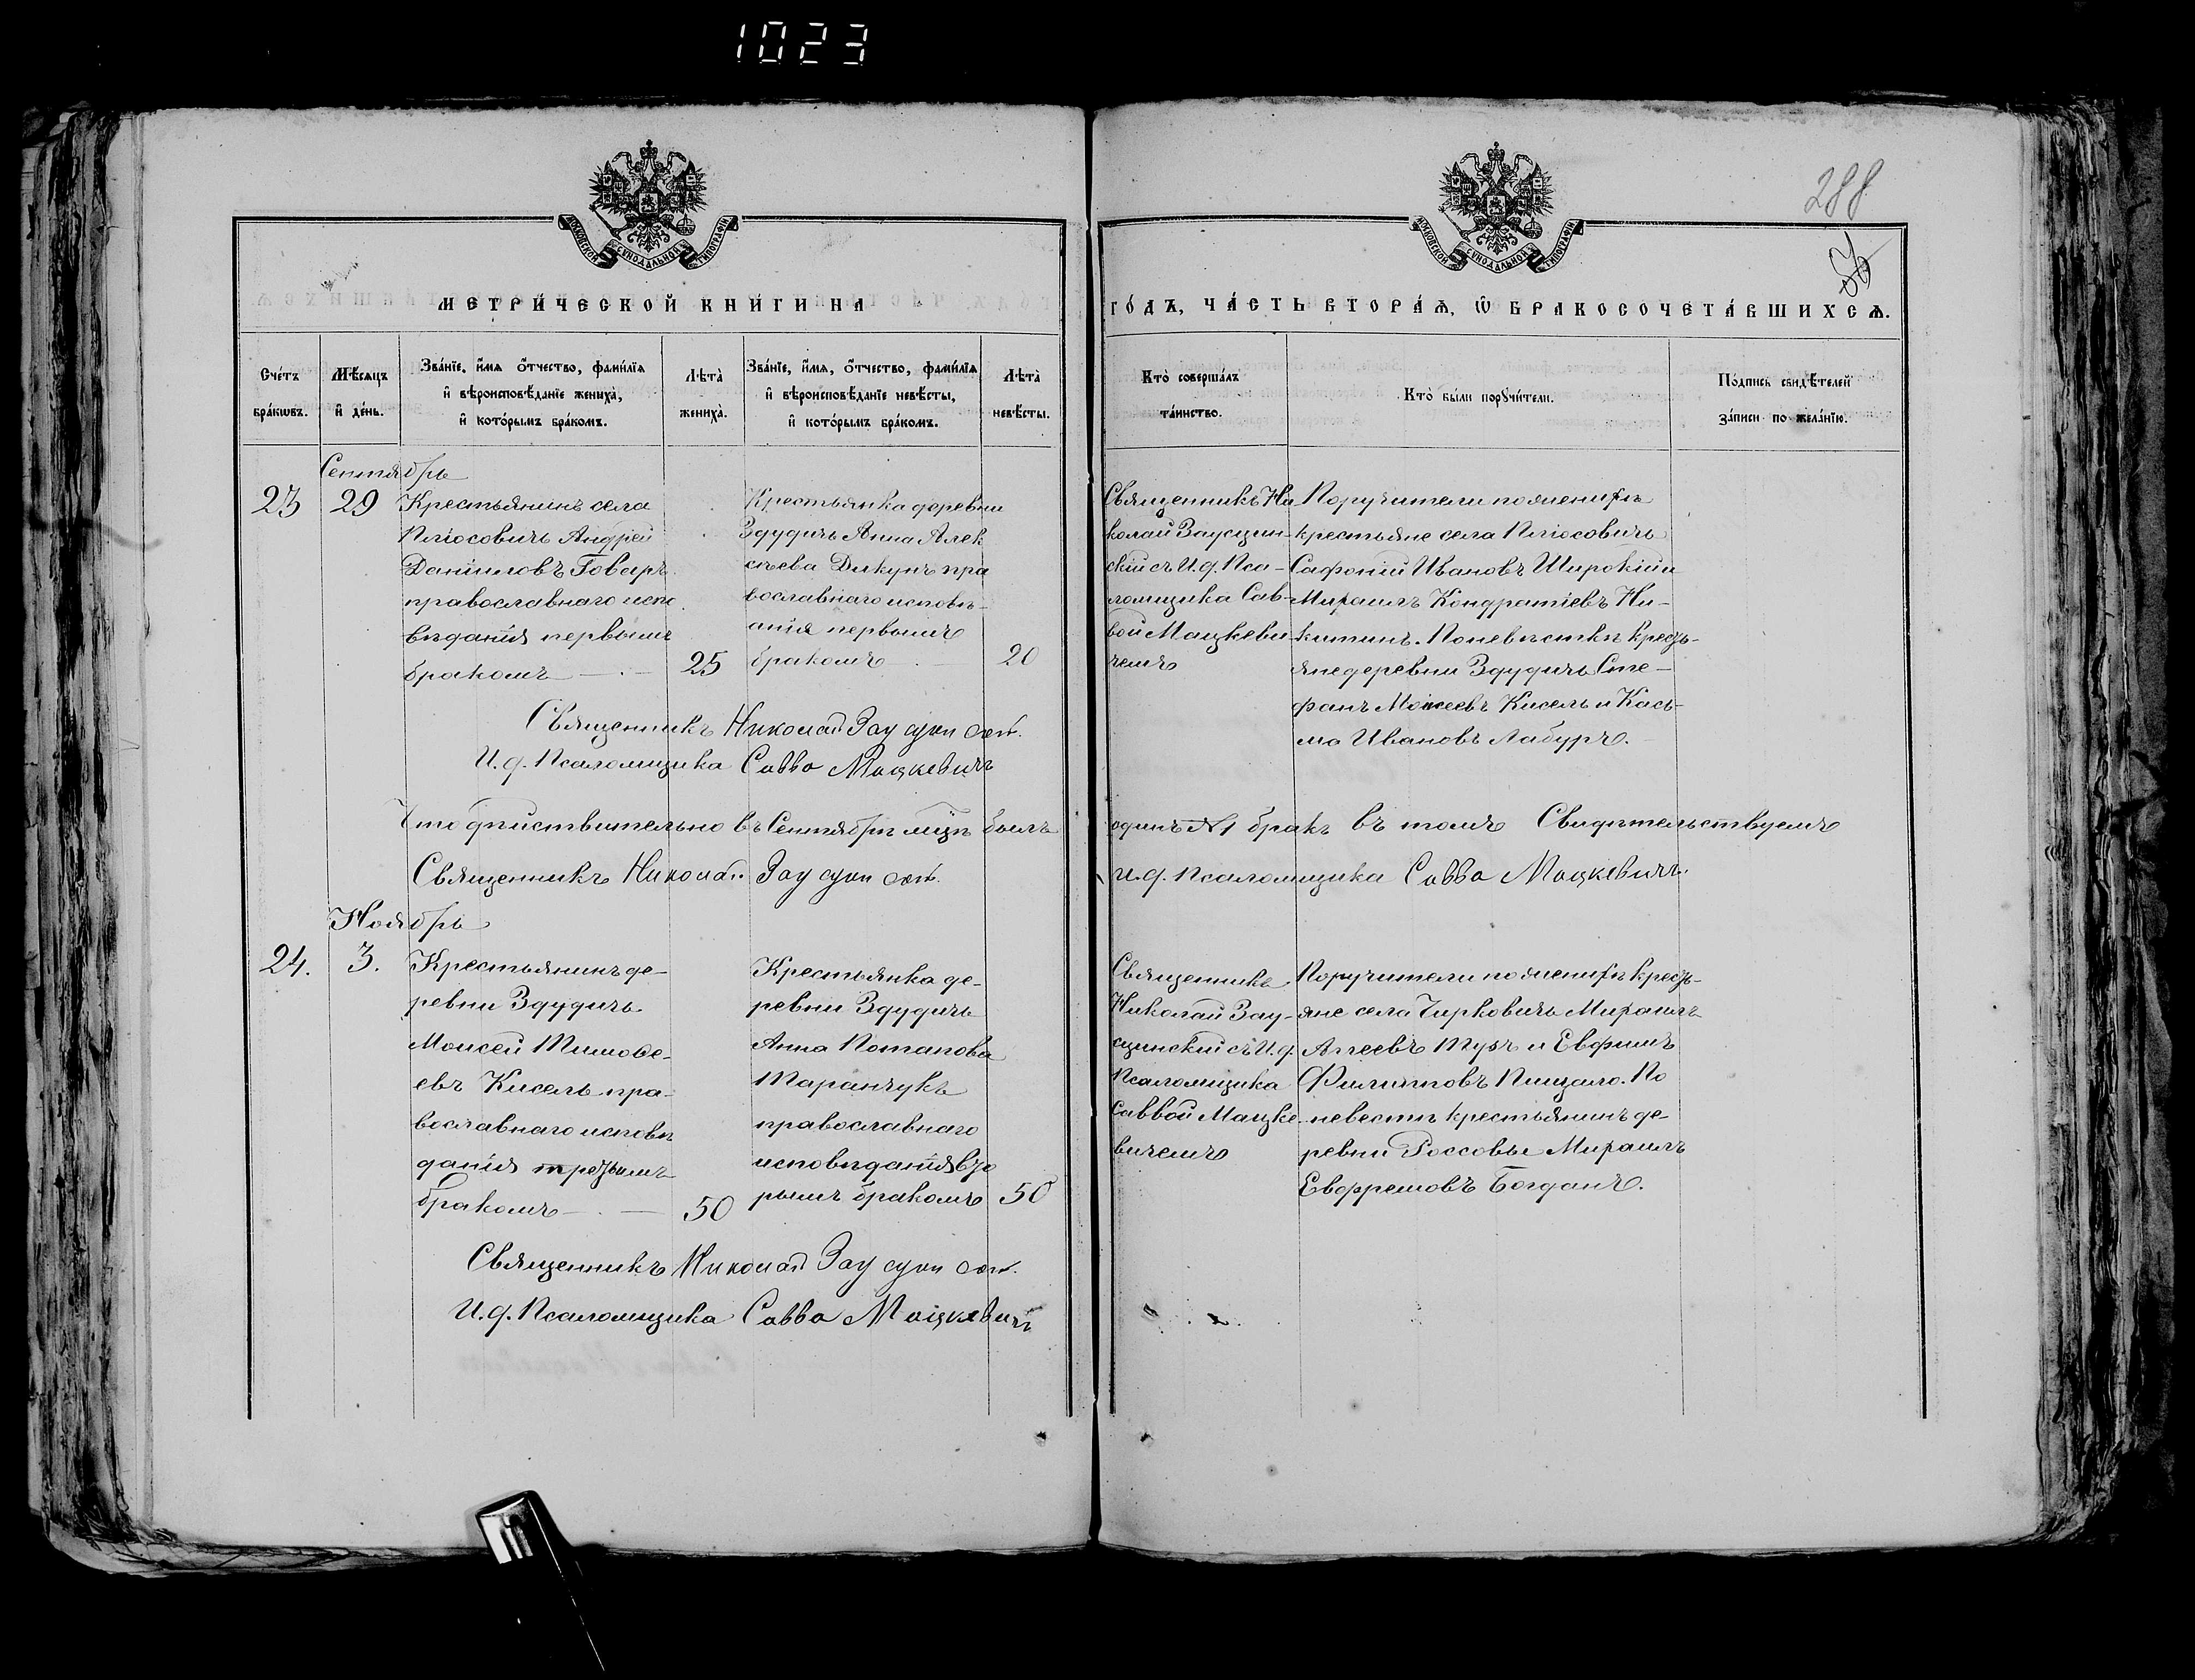 1023
288
МОСКОВСКОЙ СѴНОДАЛЬНОЙ ТИПОГРАФІИ
МОСКОВСКОЙ СѴНОДАЛЬНОЙ ТИПОГРАФІИ
МЕТРИ́ЧЕСКОЙ КНИ́ГИ НА
ГО́ДЪ, ЧА́СТЬ ВТОРА́Ѧ, Ѽ БРАКОСОЧЕТА́ВШИХСѦ.
Сче́тъ бра́кѡвъ.
Мѣ́сяцъ и҆ де́нь.
Зва́нїе, и҆́мя о҆́тчество, фами́лїя
и҆ вѣроисповѣ́данїе жениха̀,
и҆ кото́рымъ бра́комъ.
Лѣта̀ жениха̀.
Зва́нїе, и҆́мя, о҆́тчество, фами́лїя
и҆ вѣроисповѣ́данїе невѣ́сты,
и҆ кото́рымъ бра́комъ.
Лѣта̀ невѣ́сты.
Кто̀ соверша́лъ
та́инство.
Кто̀ бы́ли порꙋчи́тели.
По́дпись свидѣ́телей
за́писи по жела́нїю.
Сентябрь
23
29
Крестьянинъ села
Плюсовичъ Андрей
Даниловъ Говаръ
православнаго испо
вѣданія первымъ
бракомъ
25
Крестьянка деревни
Здудичъ Анна Алек
сѣева Дикунъ пра
вославнаго исповѣ-
анія первымъ
бракомъ
20
Священникъ Ни
колай Заусцин-
скій съ И. д. Пса-
ломщика Сав-
вой Мацкеви
чемъ
Поручители по женихѣ
крестьяне села Плюсовичъ
Сафоній Ивановъ Широкій и
Михаилъ Кондратіевъ Ни-
китинъ. По невѣстѣ кресть-
яне деревни Здудичъ Сте-
фанъ Моисеевъ Кисель и Кась-
ма Ивановъ Лабуръ.
Священникъ Николай Заусцинскій.
И. д. Псаломщика Савва Мацкевичъ
Что дѣйствительно въ Сентябрѣ мцѣ былъ
одинъ №1 бракъ въ томъ Свидѣтельствуемъ
Священникъ Николай Заусцинскій.
И. д. Псаломщика Савва Мацкевичъ.
Ноябрь
24.
3.
Крестьянинъ де-
ревни Здудичъ
Моисей Тимофе-
евъ Кисель пра-
вославнаго исповѣ
данія третьимъ
бракомъ
50
Крестьянка де-
ревни Здудичъ
Анна Потапова
Таранчукъ
православнаго
исповѣданія вто
рымъ бракомъ
50
Священникъ
Николай Зау-
сцинскій съ И. д.
Псаломщика
Саввой Мацке-
вичемъ
Поручители по женихѣ кресть-
яне села Чирковичъ Михаилъ
Агеевъ Тузъ и Евфимъ
Филипповъ Пищало. По
невестѣ крестьянинъ де-
ревни Россовы Михаилъ
Евфремовъ Богданъ.
Священникъ Николай Заусцинскій.
И. д. Псаломщика Савва Мацкевичъ